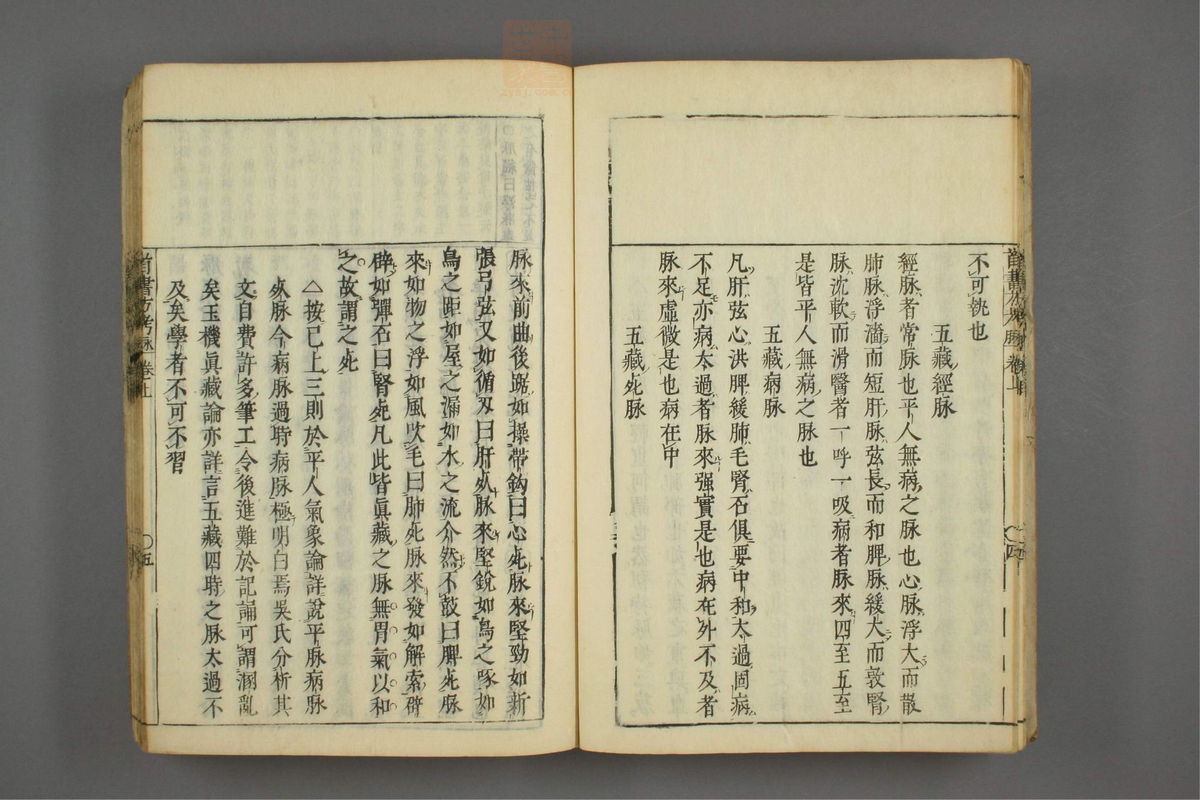 不可執也
五藏經脉
經脉者常脉也平人無病之脉也心脉浮大而散
肺脉浮濇而短肝脉弦長而和脾脉緩大而敦腎
脉沈軟而滑醫者一呼一吸病者脉來四至五至
是皆平人無病之脉也
五藏病脉
凡肝弦心洪脾緩肺毛腎石俱要中和太過固病
不足亦病太過者脉來强實是也病在外不及者
脉來虛微是也病在中
五藏死脉
脉來前曲後踞如操帶鈎曰心死脉來堅勁如新
張弓弦又如循刃曰肝死脉來堅銳如鳥之啄如
鳥之距如屋之漏如水之流介然不鼓曰脾死脉
來如物之浮如風吹毛曰肺死脉來發如解索辟
辟如彈石曰腎死凡此皆眞藏之脉無胃氣以和
之故謂之死
△按已上三則於平人氣象論詳說平脉病脉
死脉今病脉過時病脉極明白焉吳氏分析其
文自費許多筆工令後進難於記誦可謂溷亂
矣玉機眞藏論亦詳言五藏四時之脉太過不
及矣學者不可不習
首書方考脉 卷上
〇五